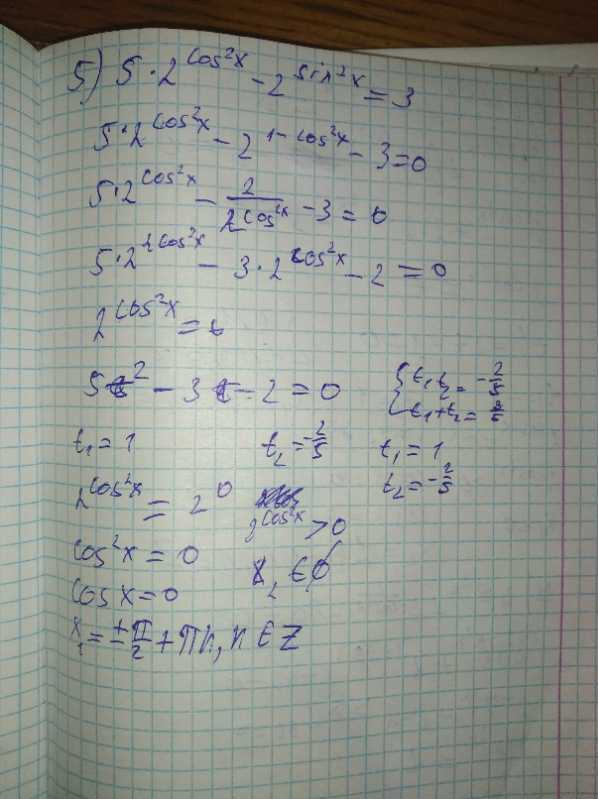 5) 5·2^cos²x - 2^sin²x = 3
5·2^cos²x - 2^1-cos²x - 3=0
5·2^cos²x - 2/2^cos²x - 3 = 0
5·2^2cos²x - 3·2^cos²x - 2 = 0
2^cos²x = t
5t² - 3t - 2 = 0
{t₁t₂ = -2/5
t₁+t₂ =
t₁ = 1 t₂ = -2/5
t₁ = 1
t₂ = -2/5
2^cos²x = 2^0
2^cos²x > 0
cos²x = 0
x₂ ∈ ∅
cos x = 0
x₁ = ±π/2 + πn, n ∈ Z